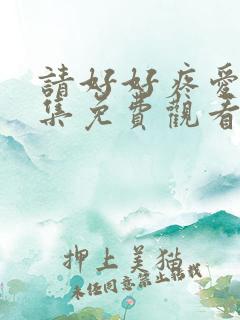 請好好疼愛
集免費觀看
押上美猫
未经同意禁止转载